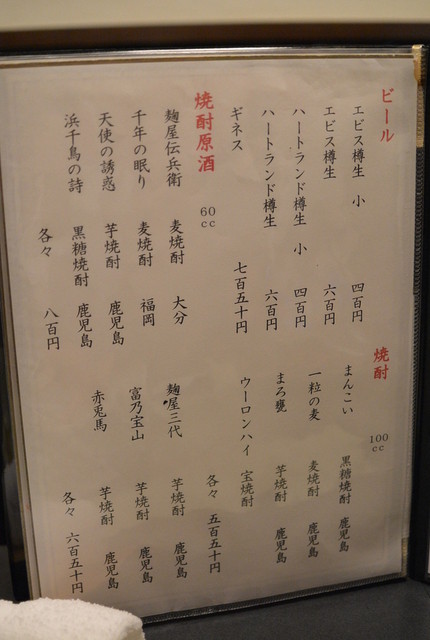 ビール
エビス樽生 小 四百円
エビス樽生 六百円
ハートランド樽生 小 四百円
ハートランド樽生 六百円
ギネス 七百五十円
焼酎原酒 60cc
麹屋伝兵衛 麦焼酎 大分
千年の眠り 麦焼酎 福岡
天使の誘惑 芋焼酎 鹿児島
浜千鳥の詩 黒糖焼酎 鹿児島
各々 八百円
焼酎 100cc
まんこい 黒糖焼酎 鹿児島
一粒の麦 麦焼酎 鹿児島
まろ甕 芋焼酎 鹿児島
ウーロンハイ 宝焼酎
各々 五百五十円
麹屋三代 芋焼酎 鹿児島
富乃宝山 芋焼酎 鹿児島
赤兎馬 芋焼酎 鹿児島
各々 六百五十円